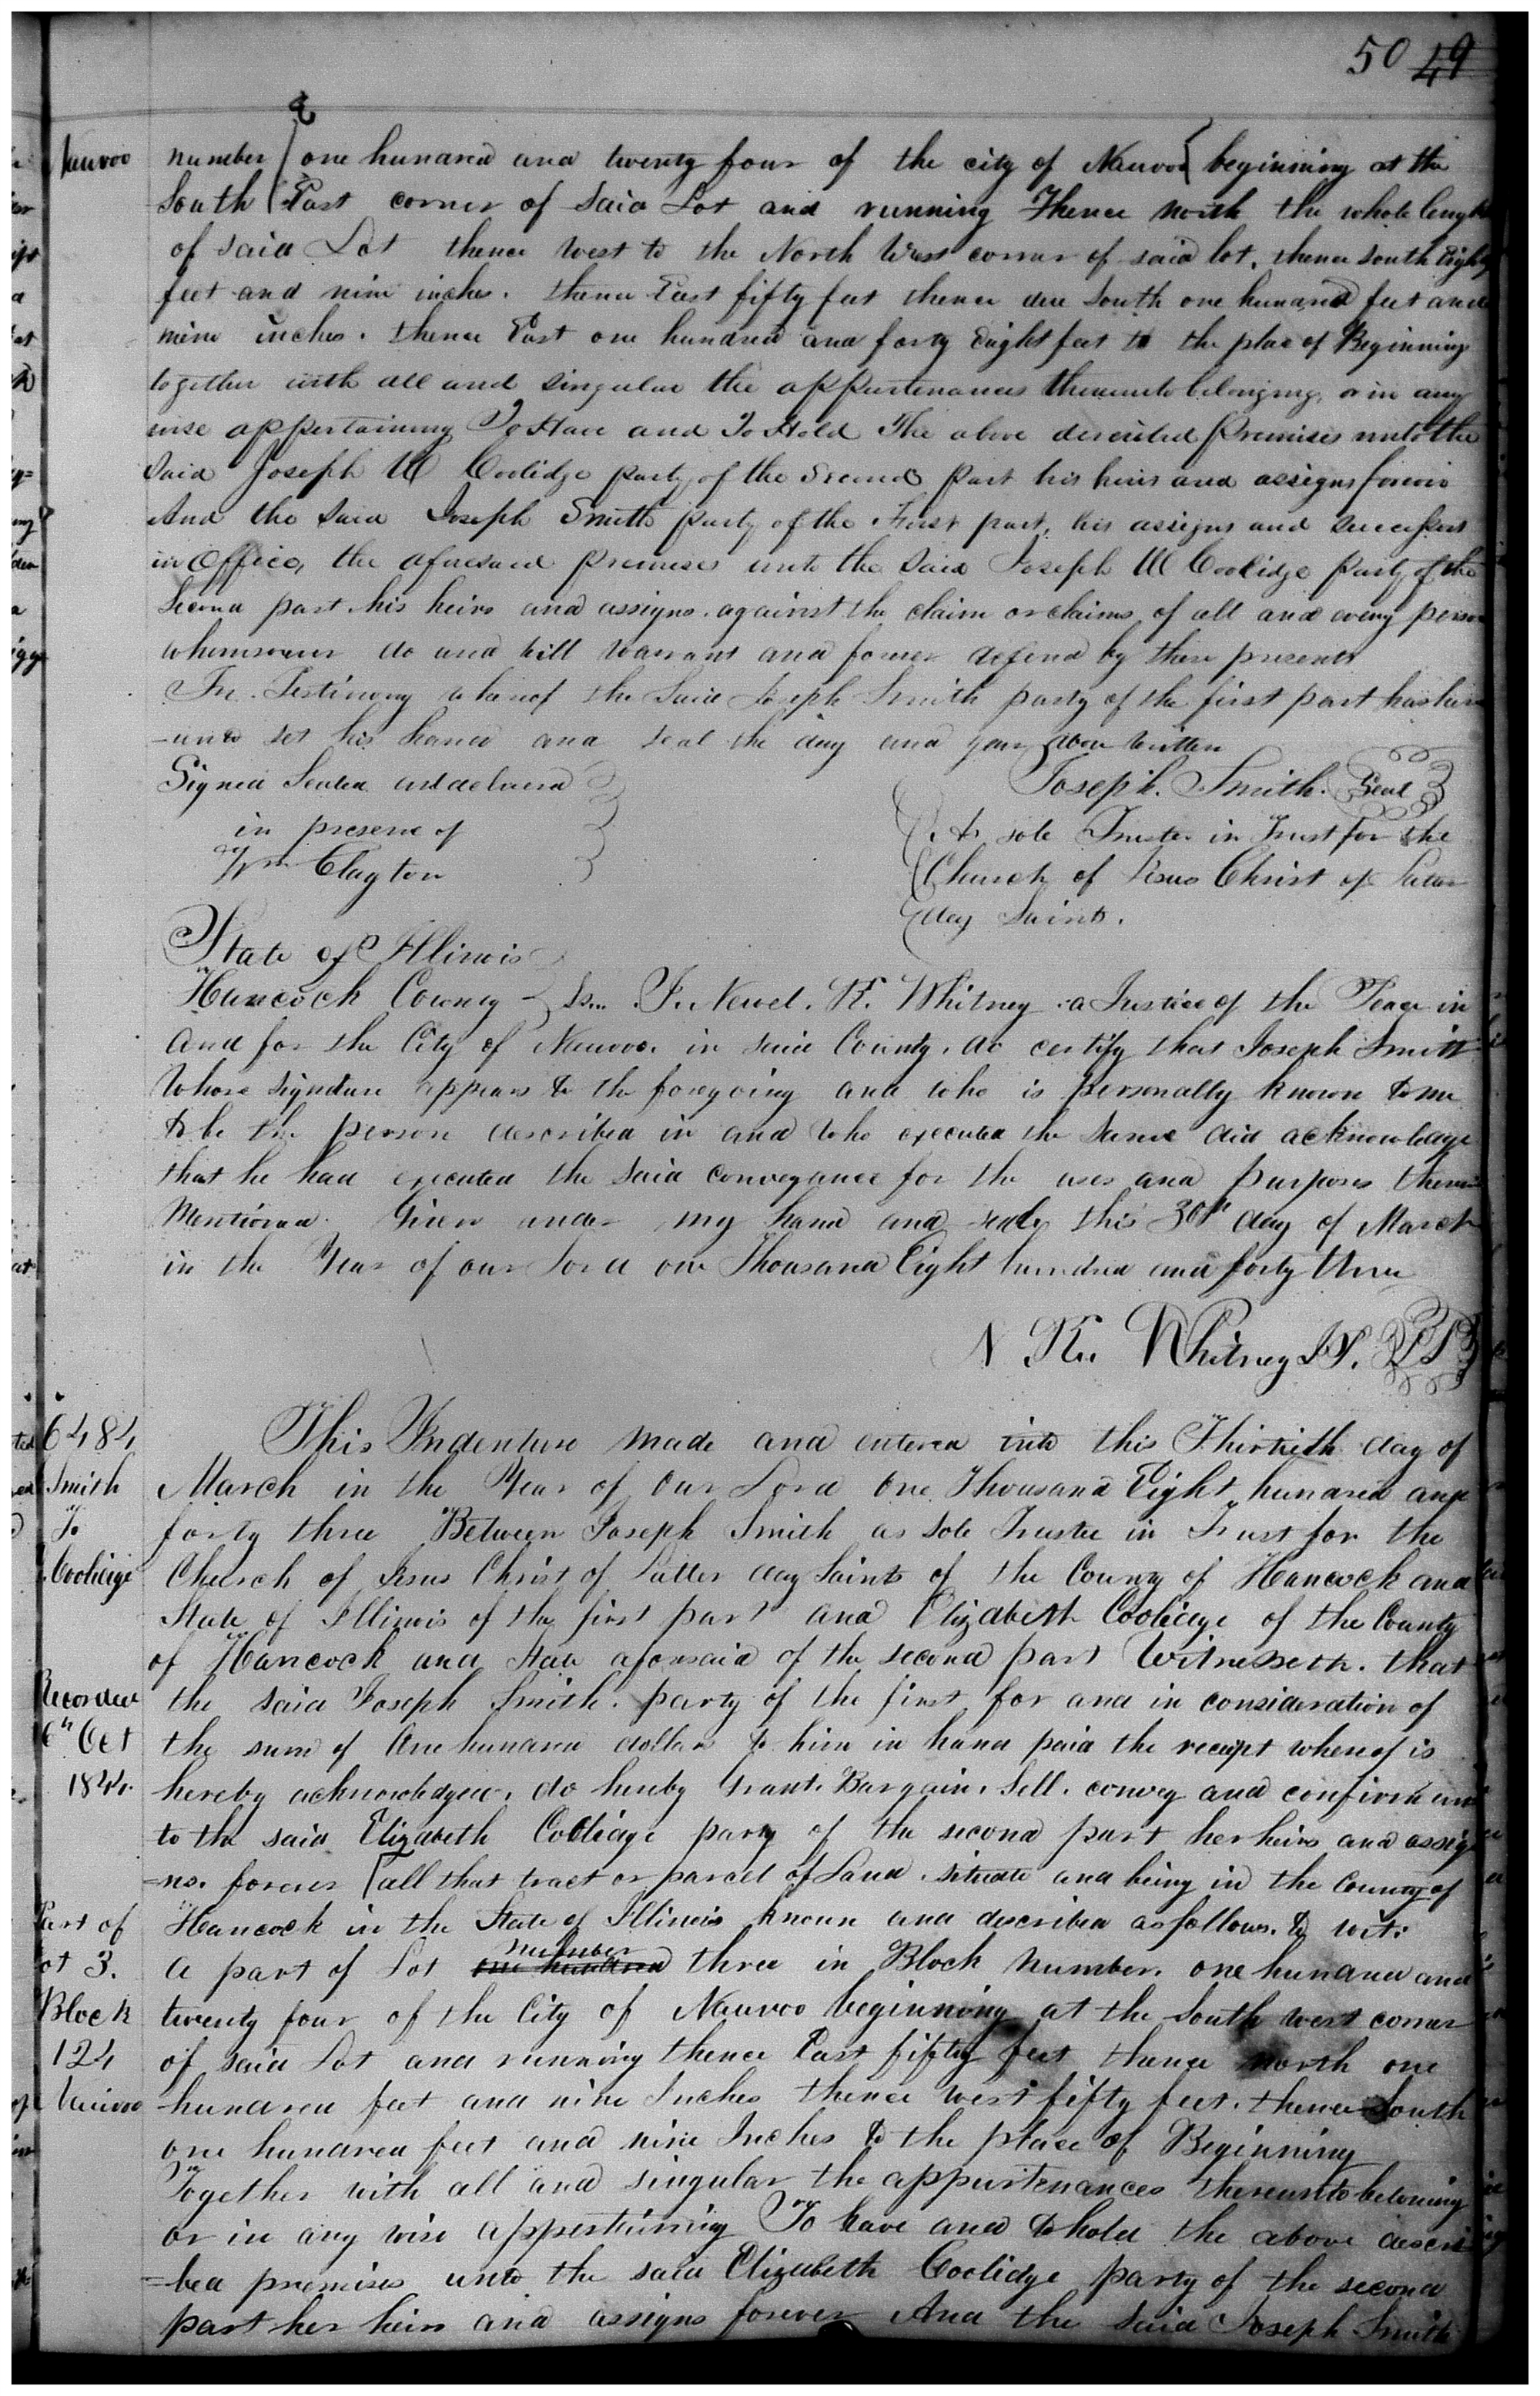 50 49
Nauvoo
number one hundred and twenty four of the city of Nauvoo beginning at the
South East corner of said Lot and running Thence North the whole length
of said Lot thence West to the North West corner of said lot. thence South Eighty
feet and nine inches. thence East fifty feet thence due South one hundred feet and
nine inches. thence East one hundred and forty Eight feet to the place of Beginning
together with all and singular the appurtenances thereunto belonging, or in any
wise appertaining To Have and To Hold The above described Premises unto the
said Joseph W Coolidge party of the Second Part his heirs and assigns forever
And the said Joseph Smith party of the First part, his assigns and successors
in Office, the aforesaid Premises unto the said Joseph W Coolidge Party of the
Second part his heirs and assigns. against the claim or claims of all and every person
whomsoever do and will warrant and forever defend by these presents
In Testimony whereof the Said Joseph Smith party of the first part has here
-unto set his hand and seal the day and year above written
Signed Sealed and delivered Joseph. Smith. Seal
in presence of As sole Trustee in Trust for the
Wm Clayton Church of Jesus Christ of Latter
day Saints.
State of Illinois
Hancock County Ss.. I. Newel. K. Whitney a Justice of the Peace in
and for the City of Nauvoo. in said County. do certify that Joseph Smith
whose signature appears to the foregoing and who is personally known to me
to be the person described in and who executed the same did acknowledge
that he had executed the said conveyance for the uses and purposes therein
Mentioned. Given under my hand and seal this 30th day of March
in the Year of our Lord one Thousand Eight hundred and forty three
N K. Whitney J.P. LS
6484
Smith
To
Coolidge
This Indenture made and entered into this Thirtieth day of
March in the Year of Our Lord One Thousand Eight hundred and
forty three Between Joseph Smith as sole Trustee in Trust for the
Church of Jesus Christ of Latter day Saints of the County of Hancock and
State of Illinois of the first part and Elizabeth Coolidge of the County
of Hancock and State aforesaid of the second part Witnesseth. that
Recorded
6th Oct
1844.
the said Joseph Smith. party of the first for and in consideration of
the sum of One hundred dollars to him in hand paid the receipt whereof is
hereby acknowledged. do hereby Grant. Bargain. Sell. convey and confirm un
to the said Elizabeth Coolidge party of the second part her heirs and assig
=ns. forever all that tract or parcel of Land. situate and being in the County of
Part of
Lot 3.
Block
124
Nauvoo
Hancock in the State of Illinois known and described as follows. to wit:
number
a part of Lot one hundred three in Block Number. one hundred and
twenty four of the City of Nauvoo beginning at the South west corner
of said Lot and running thence East fifty feet thence North one
hundred feet and nine Inches thence west fifty feet. thence South
one hundred feet and nine Inches to the place of Beginning
Together with all and singular the appurtenances thereunto belonging
or in any wise appertaining To have and to hold the above descri
=bed premises unto the said Elizabeth Coolidge party of the second
part her heirs and assigns forever And the said Joseph Smith